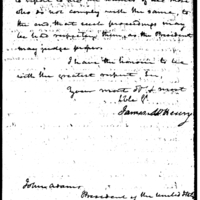 to report to me the names of all those
who do not comply with the same, to
the end, that such proceedings may
be had respecting them, as the President
may judge proper.
I have the honour to be
with the greatest respect Sir,
Your most Obt & most
hble S
James McHenry
John Adams
President of the United States